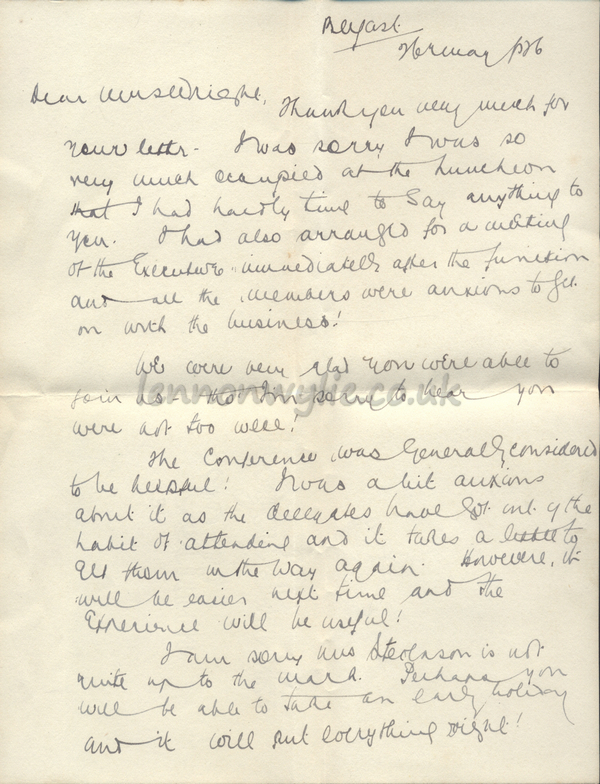 Belfast.
26 May 1926
Dear Miss Wright,
Thank you very much for
your letter - I was sorry I was so
very much occupied at the luncheon
that I had hardly time to say anything to
you. I had also arranged for a meeting
of the Executive immediately after the function
and all the members were anxious to get
on with the business!
We were very glad you were able to
join us - tho' I'm sorry to hear you
were not too well!
lennonwylie.co.uk
The Conference was generally considered
to be helpful! I was a bit anxious
about it as the delegates have got out of the
habit of attending and it takes a little to
get them in the way again. However, it
will be easier next time and the
Experience will be useful!
I am sorry Mrs Stevenson is not
quite up to the mark. Perhaps you
will be able to take an early holiday
and it will put everything right!